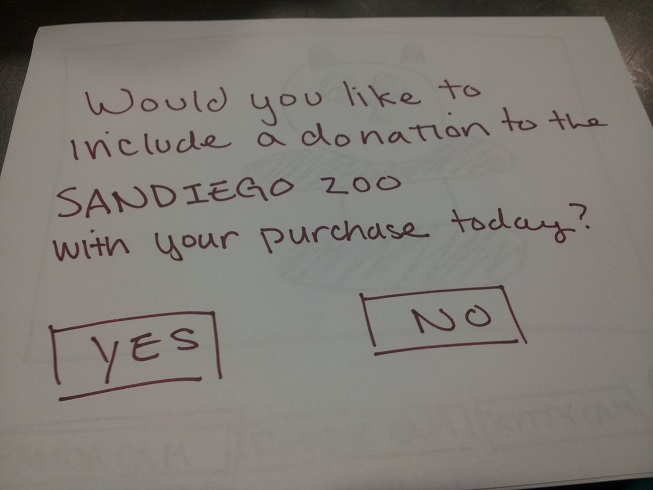 Would you like to
include a donation to the
SANDIEGO ZOO
with your purchase today?
YES
NO